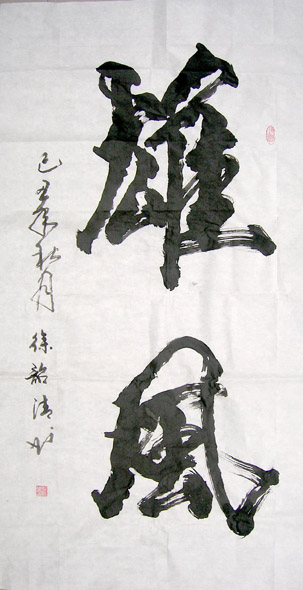 雄風
己丑年秋月 徐韶清书